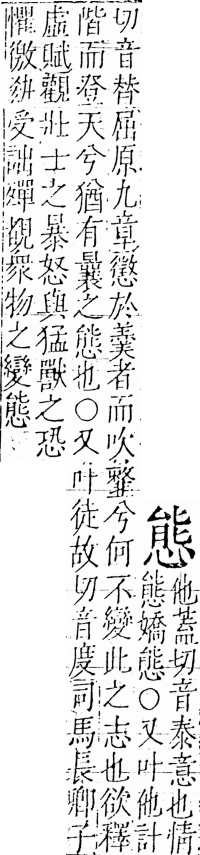 態
他蓋切音泰意也情
態嬌態○又叶他計
切音替屈原九章懲於羹者而吹韲兮何不變此之志也欲釋
階而登天兮猶有曩之態也○又叶徒故切音度司馬長卿子
虛賦觀壯士之暴怒與猛獸之恐
懼徼䠿受詘殫覩衆物之變態